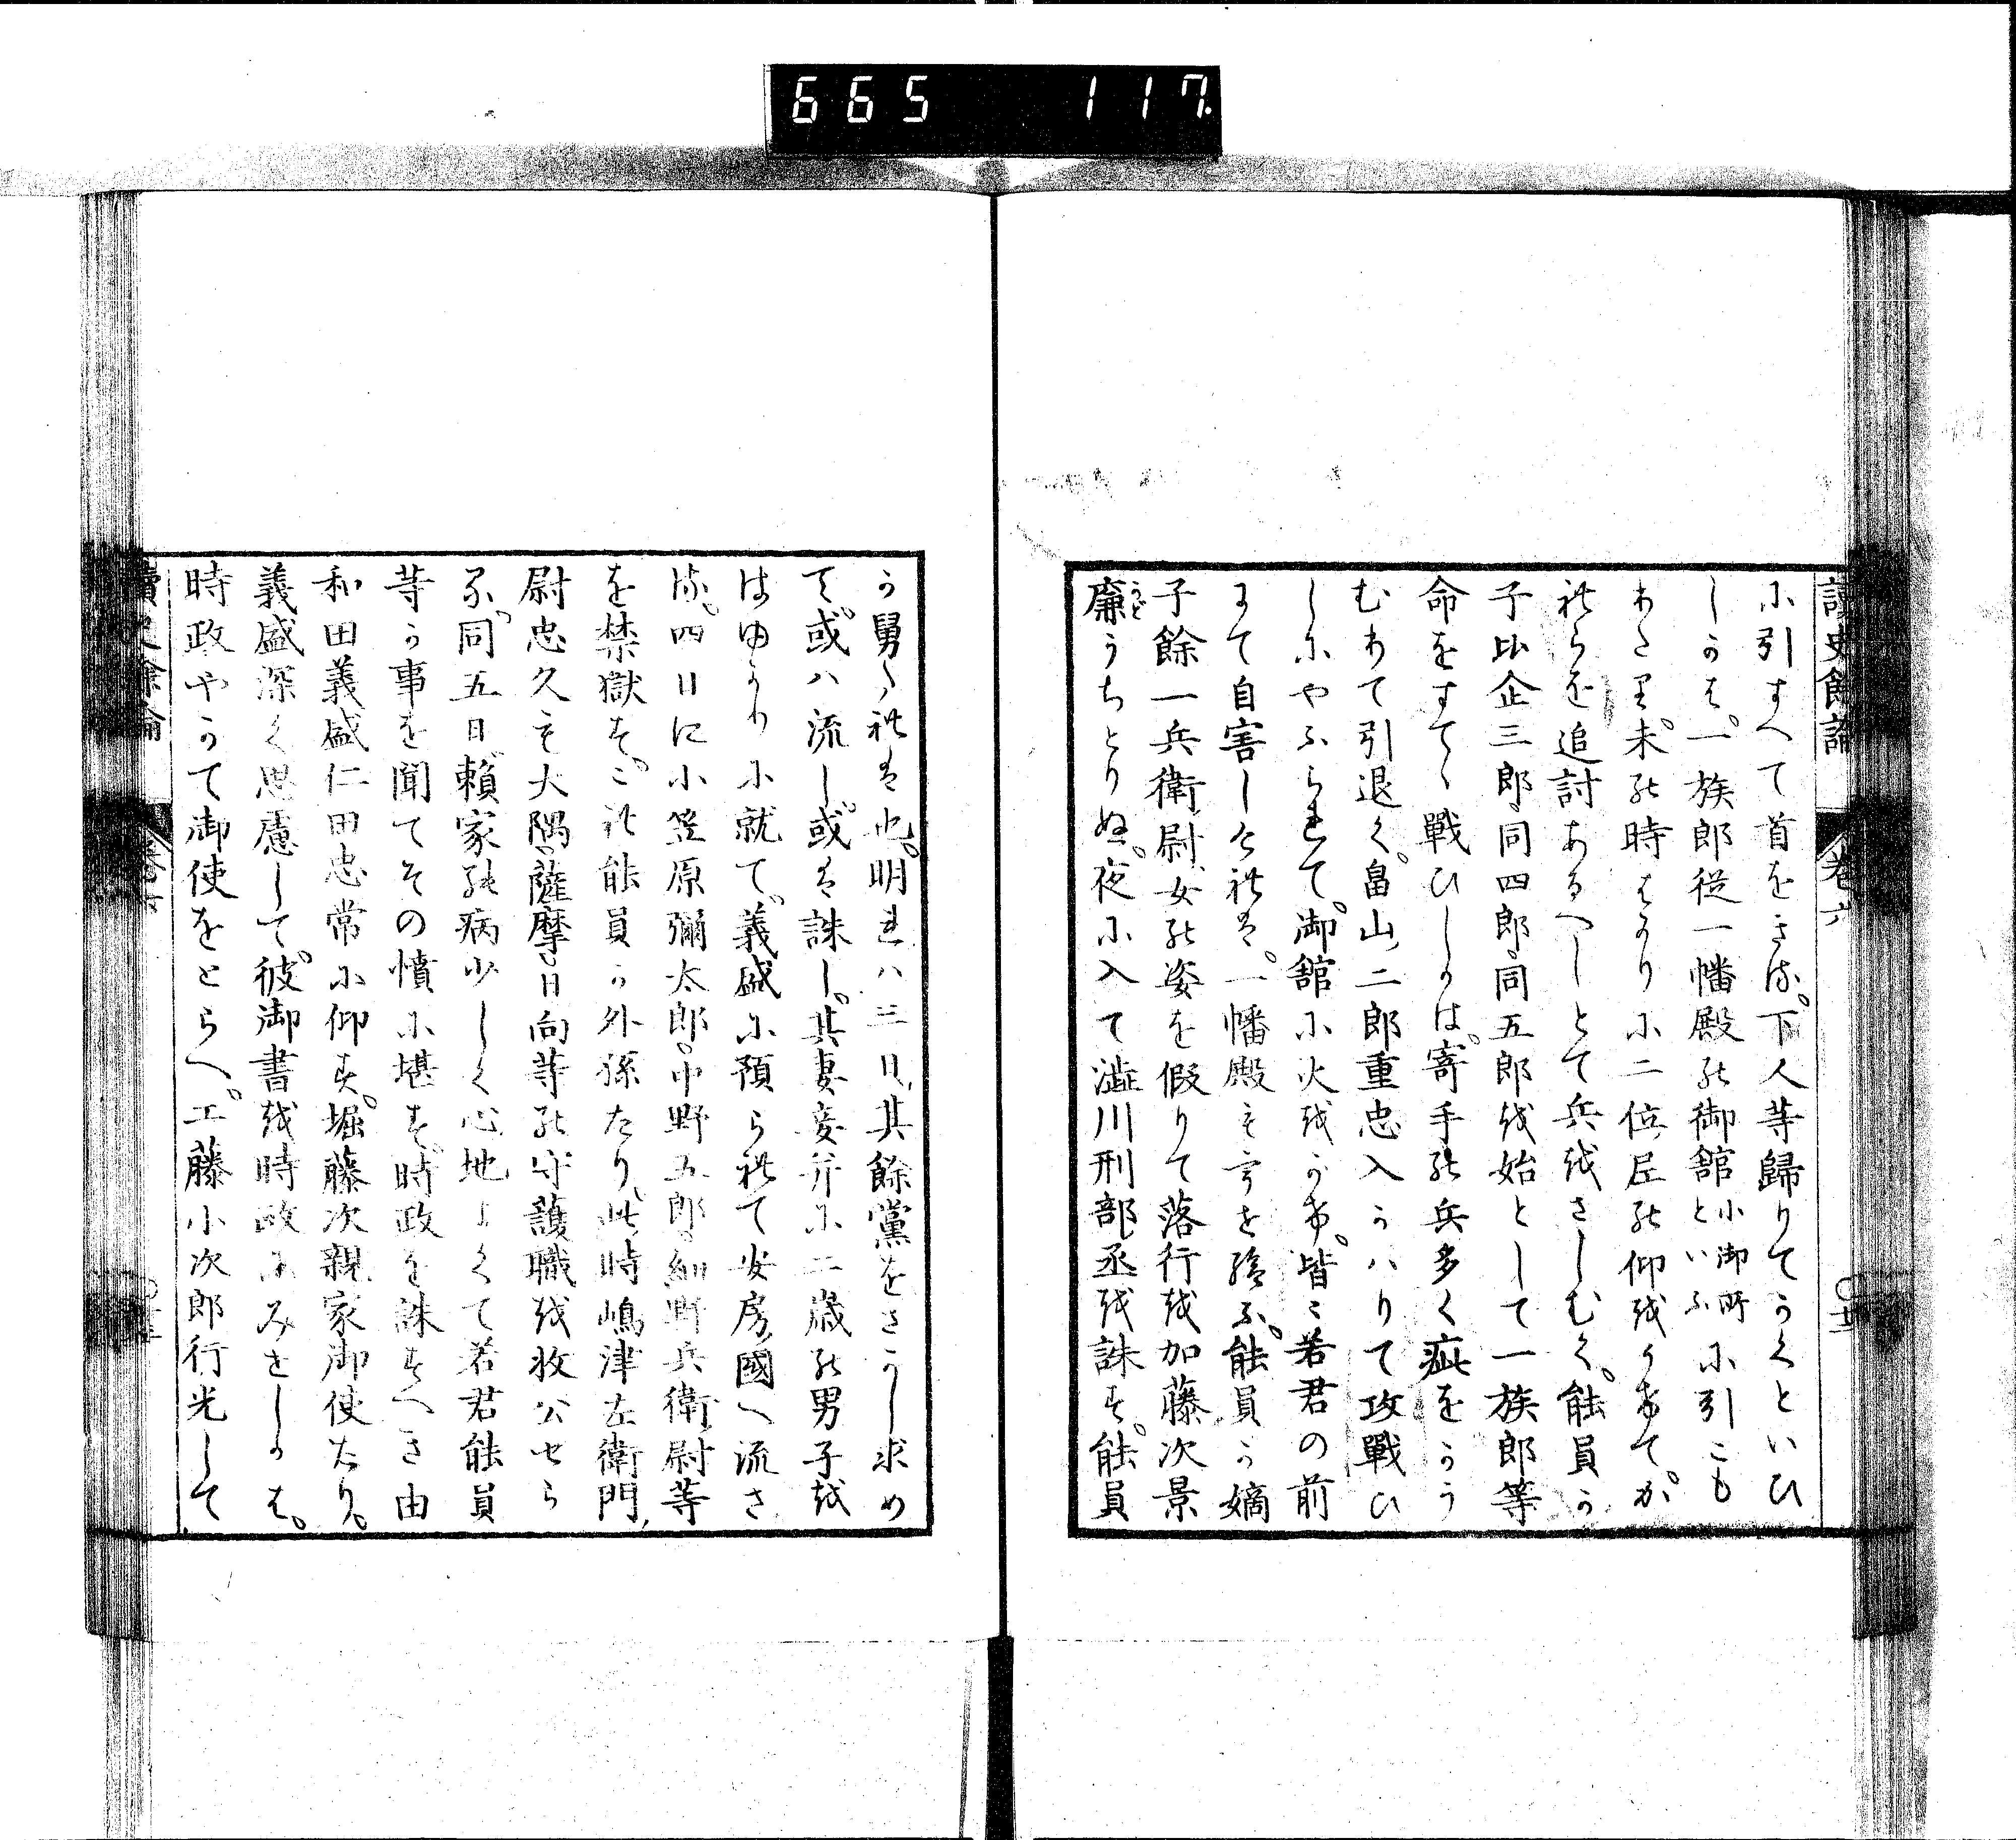 665 117
讀史餘論 卷六
に引すへて首をきる。下人等歸りてかくといひ
しかは。一族郎従一幡殿の御舘小御所といふに引こも
れり。未の時はかりに二位尼の仰をうけて。か
れらを追討あるへしとて兵をさしむく。能員か
子比企三郎。同四郎。同五郎を始として一族郎等
命をすてゝ戰ひしかは。寄手の兵多く疵をかう
むりて引退く。畠山二郎重忠入かはりて攻戰ひ
しにやふられて。御舘に火をかけ。皆〻若君の前
にて自害しけれは。一幡殿も
を給ふ。能員か嫡
子餘一兵衛尉女の姿を假りて落行を加藤次景
廉うちとりぬ。夜に入て澁川刑部丞を誅す。能員
かど
か舅なれは也。明れは三日其餘黨をさかし求め
て。或ハ流し。或は誅し。其妻妾并に二歳の男子を
はゆかりに就て。義盛に預られて安房國へ流さ
る。四日に小笠原彌太郎。中野五郎。細野兵衛尉等
を禁獄す。これ能員か外孫たり。此時嶋津左衛門
尉忠久も大隅。薩摩。日向等の守護職を收公せら
る。同五日頼家の病少しく心地よくて若君能員
等か事を聞てその憤に堪す。時政を誅すへき由
和田義盛仁田忠常に仰す。堀藤次親家御使たり。
義盛深く思慮して。彼御書を時政にみせしかは。
時政やかて御使をとらへ。工藤小次郎行光して
讀史餘論 卷六